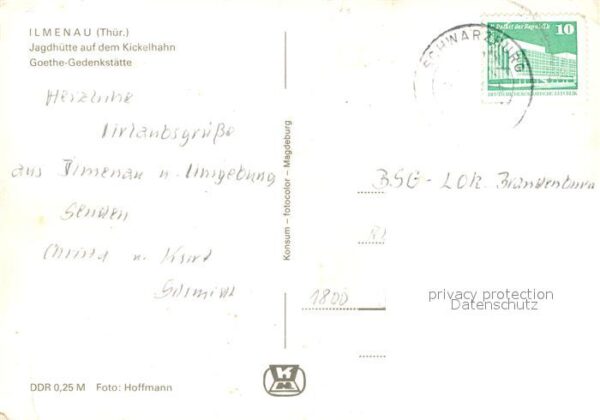 ILMENAU (Thür.)
Jagdhütte auf dem Kickelhahn
Goethe-Gedenkstätte
Herzliche
Urlaubsgrüße
aus Ilmenau u. Umgebung
senden
Christa u. Kurt
Schmidt
DDR 0,25 M Foto: Hoffmann
Konsum - fotocolor - Magdeburg
SCHWARZBURG
Palast der Republik
10
DEUTSCHE DEMOKRATISCHE REPUBLIK
BSG - LOK. Brandenburg
1800
privacy protection
Datenschutz